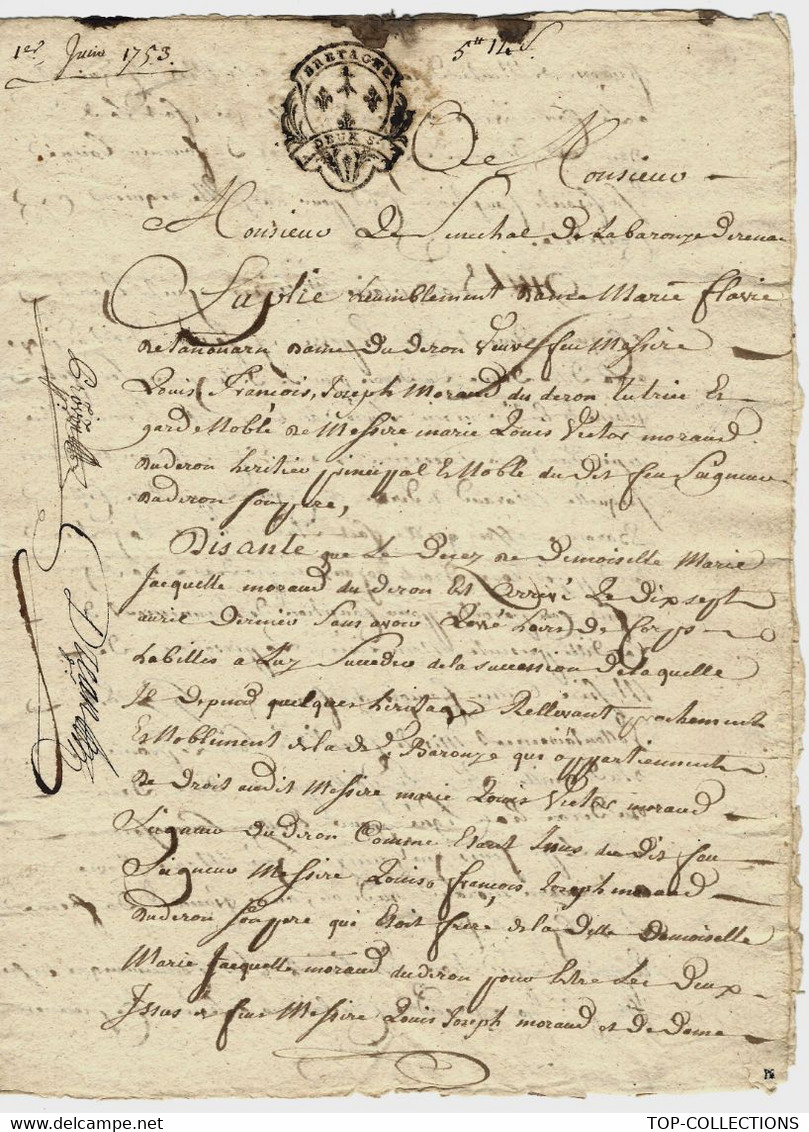 1er Juin 1753.
5tt 12 s
BRETAGNE
A DEUX S.
A Monsieur
Monsieur Le Senechal de La baronye derenac
Suplie humblement Dame Marie flavie
de Lanouarn dame du deron veuve feu Messire
Louis François, Joseph Morand du deron tutrice Et
garde Noble de Messire marie Louis Victor morand
duderon heritier principal Et Noble du dit feu Seigneur
duderon son pere,
Disante que Le Decez de Demoiselle Marie
Jacquette morand du deron Est arrivé Le dix sept
avril dernier Sans avoir Lessé hoirs de Corps
habilles a Luy Succeder de la succession de laquelle
Il depend quelques heritages Rellevant prochement
Et Noblement de la de Baronye qui appartiennent
de droit audit Messire marie Louis Victor morand
Seigneur du deron Comme Etant Issus du dit feu
Seigneur Messire Louis françois Joseph morand
duderon son pere qui Etoit frere de la ditte Demoiselle
Marie Jacquette morand duderon pour Estre Les deux
Issus de feus Messire Louis Joseph morand et de Dame
TOP-COLLECTIONS